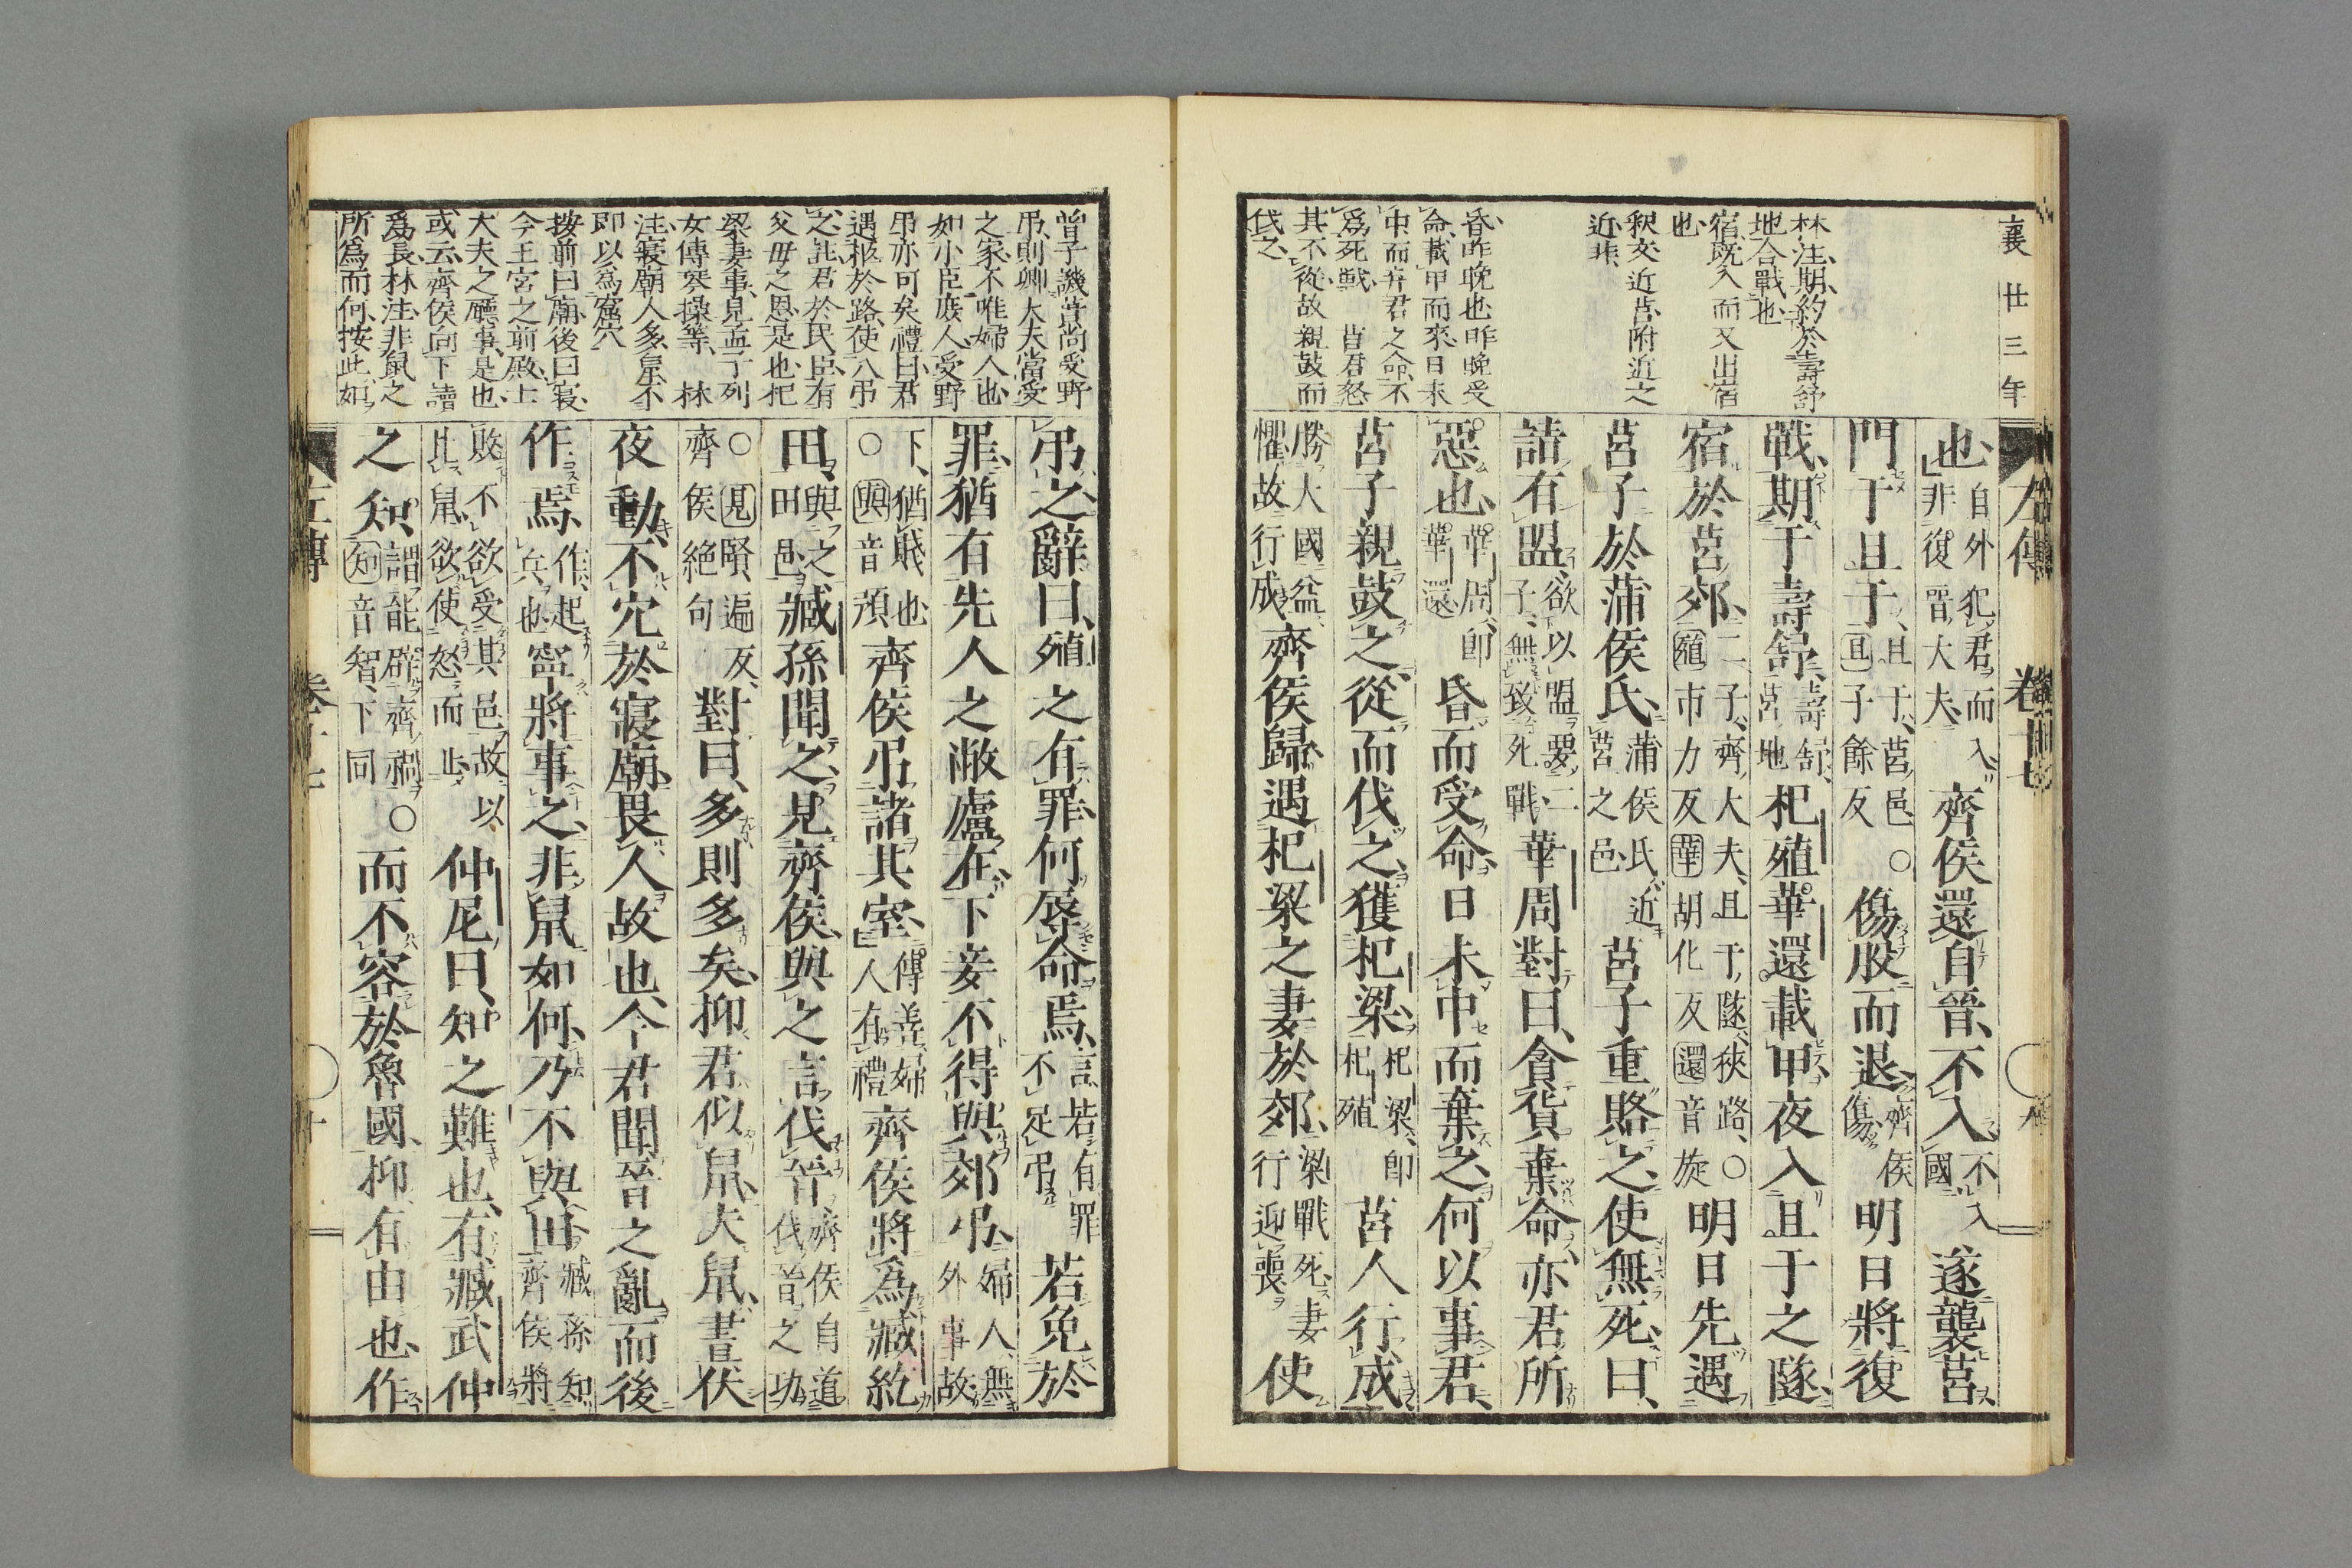 襄廿三年
左傳 卷十七 九
林注期約於壽舒
地合戰也
宿既入而又出宿
也
釈文近莒附近之
近非
昏昨晩也昨晩受
命載甲而來日未
中而弃君之命不
爲死戦 莒君怒
其不從故親鼓而
伐之
也自外犯君而入非復晉大夫齊侯還自晉不入不入國遂襲莒
門于且于且于莒邑○且子餘反傷股而退齊侯傷明日將復
戰期于壽舒壽舒莒地杞殖華還載甲夜入且于之隧
宿於莒郊二子齊大夫且于隧狹路○殖市力反華胡化反還音旋明日先遇
莒子於蒲侯氏蒲侯氏近莒之邑莒子重賂之使無死曰
請有盟欲以盟要二子無致死戰華周對曰貪貨棄命亦君所
惡也華周卽華還昏而受命日未中而棄之何以事君
莒子親鼓之從而伐之獲杞梁杞梁卽杞殖莒人行成
勝大國益懼故行成齊侯歸遇杞梁之妻於郊梁戰死妻行迎喪使
曽子譏蕢尚受野
弔則卿大夫當受
之家不唯婦人也
如小臣庻人受野
弔亦可矣禮曰君
遇柩於路使人弔
之註君於民臣有
父毋之恩是也杞
梁妻事見孟子列
女傳琴操等 林
注寢廟人多鼠不
即以爲窟穴
按前曰廟後曰寢
今王宮之前殿士
大夫之廳事是也
或云齊侯向下讀
爲長林注非鼠之
所爲而何按此如
弔之辭曰殖之有罪何辱命焉言若有罪不足弔若免於
罪猶有先人之敝廬在下妾不得與郊弔婦人無外事故
下猶賤也○與音預齊侯弔諸其室傳善婦人有禮齊侯將爲臧紇
田與之田邑臧孫聞之見齊侯與之言伐晉齊侯自道伐晉之功
○見賢遍反齊侯絕句對曰多則多矣抑君似鼠夫鼠晝伏
夜動不穴於寢廟畏人故也今君聞晉之亂而後
作焉作起兵也寧將事之非鼠如何乃不與田臧孫知齊侯將
敗不欲受其邑故以比鼠欲使怒而止仲尼曰知之難也有臧武仲
之知謂能辟齊禍○知音智下同而不容於魯國抑有由也作
左傳 卷十七 十